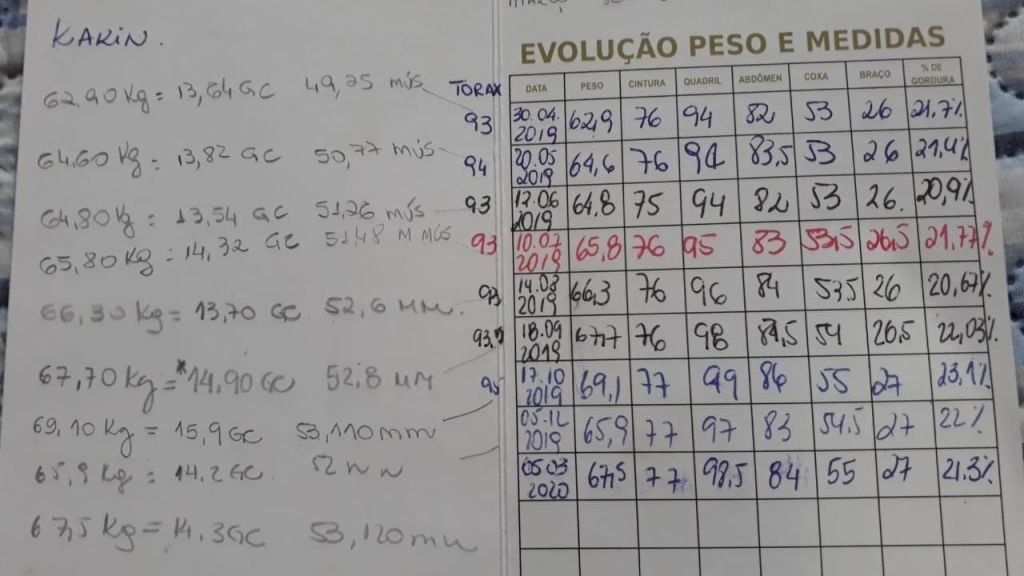 KARIN.
62,90 Kg = 13,64 GC 49,25 mús
64,60 Kg = 13,82 GC 50,77 mús
64,80 Kg = 13,54 GC 51,26 mús
65,80 Kg = 14,32 GC 51,48 M MÚS
66,30 Kg = 13,70 GC 52,6 MM.
67,70 Kg = *14,90 GC 52,8 MM
69,10 Kg = 15,9 GC 53,110 mm
65,9 Kg = 14.2 GC. 52
67,5 Kg = 14.3 GC 53,120
EVOLUÇÃO PESO E MEDIDAS
TORAX DATA PESO CINTURA QUADRIL ABDÔMEN COXA BRAÇO % DE GORDURA
93 30.04.2019 62,9 76 94 82 53 26 21,7%
94 20.05 2019 64,6 76 94 83,5 53 26 21,4%
93 12.06 2019 64.8 75 94 82 53 26. 20,9%
93 10.07 2019 65,8 76 95 83 53,5 26,5 21,77%
93 14.08 2019 66,3 76 96 84 53,5 26 20,67%
93, 18.09 2019 67,7 76 98 84,5 54 26,5 22,03%
95 17.10 2019 69,1 77 99 86 55 27 23,1%
05.12 2019 65,9 77 97 83 54.5 27 22%
05.03 2020 67,5 77 98,5 84 55 27 21.3%